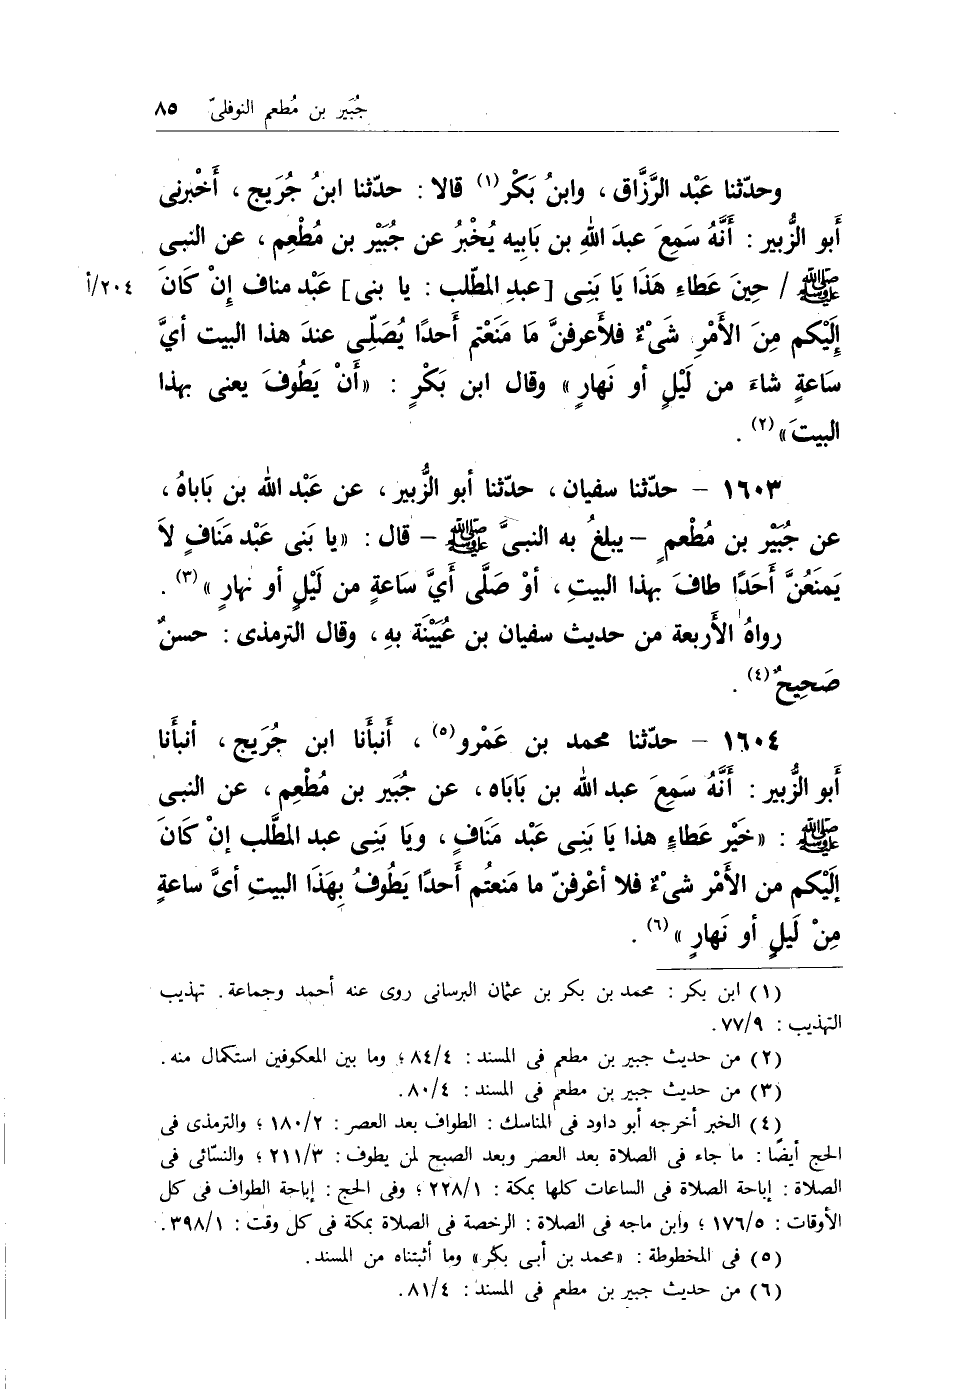 جُبَير بن مُطعم النوفلىّ ٨٥
وحدّثنا عَبْد الرَّزَّاق ، وابنُ بَكْر(١) قالا : حدّثنا ابنُ جُرَيج ، أَخْبرنى
أَبو الزُّبير : أَنَّهُ سَمِعَ عبدَ اللهِ بن بَابيه يُخْبرُ عن جُبَيْر بن مُطْعِم ، عن النبى
ﷺ / حِينَ عَطاءِ هَذَا يَا بَنِى [ عبدِ المطّلب : يا بنى ] عَبْد مناف إِنْ كَانَ ٢٠٤/أ
إِلَيْكم مِنَ الأَمْرِ شَىْءٌ فلأعرفنَّ مَا مَنَعْتم أَحدًا يُصَلِّى عندَ هذا البيت أىَّ
سَاعةٍ شاءَ من لَيْلٍ أو نَهارٍ » وقال ابن بَكْرٍ : «أَنْ يَطُوفَ يعنى بهذا
البيتَ»(٢) .
١٦٠٣ – حدّثنا سفيان ، حدّثنا أبو الزُّبير ، عن عَبْد الله بن بَاباهُ ،
عن جُبَيْر بن مُطْعمٍ – يبلغُ به النبىَّ ﷺ – قال : «يا بَنى عَبْد مَنَافٍ لاَ
يَمنَعُنَّ أَحَدًا طافَ بهذا البيتِ ، أوْ صَلَّى أَىَّ سَاعةٍ من لَيْلٍ أو نهارٍ »(٣) .
رواهُ الأَربعة من حديث سفيان بن عُيَيْنَة بهِ ، وقال الترمذى : حسنٌ
صَحِيحٌ(٤) .
١٦٠٤ – حدّثنا محمد بن عَمْرو(٥) ، أَنبأَنا ابن جُرَيج ، أنبأَنا
أَبو الزُّبير : أَنَّهُ سَمِعَ عبد الله بن بَابَاه ، عن جُبَير بن مُطْعِم ، عن النبى
ﷺ : «خَيْر عَطاءٍ هذا يَا بَنِى عَبْد مَنَافٍ ، ويَا بَنِى عبد المطَّلب إنْ كَانَ
إلَيْكم من الأَمْر شىْءٌ فلا أعْرفنّ ما مَنعتُم أَحدًا يَطُوفُ بِهَذَا البيتِ أىَّ ساعةٍ
مِنْ لَيلٍ أو نَهارٍ »(٦) .
(١) ابن بكر : محمد بن بكر بن عثمان البرسانى روى عنه أحمد وجماعة . تهذيب
التهذيب : ٧٧/٩ .
(٢) من حديث جبير بن مطعم فى المسند : ٨٤/٤ ؛ وما بين المعكوفين استكمال منه .
(٣) من حديث جبير بن مطعم فى المسند : ٨٠/٤ .
(٤) الخبر أخرجه أبو داود فى المناسك : الطواف بعد العصر : ١٨٠/٢ ؛ والترمذى فى
الحج أيضًا : ما جاء فى الصلاة بعد العصر وبعد الصبح لمن يطوف : ٢١١/٣ ؛ والنسائى فى
الصلاة : إباحة الصلاة فى الساعات كلها بمكة : ٢٢٨/١ ؛ وفى الحج : إباحة الطواف فى كل
الأوقات : ١٧٦/٥ ؛ وابن ماجه فى الصلاة : الرخصة فى الصلاة بمكة فى كل وقت : ٣٩٨/١ .
(٥) فى المخطوطة : «محمد بن أبى بكر» وما أثبتناه من المسند .
(٦) من حديث جبير بن مطعم فى المسند : ٨١/٤ .